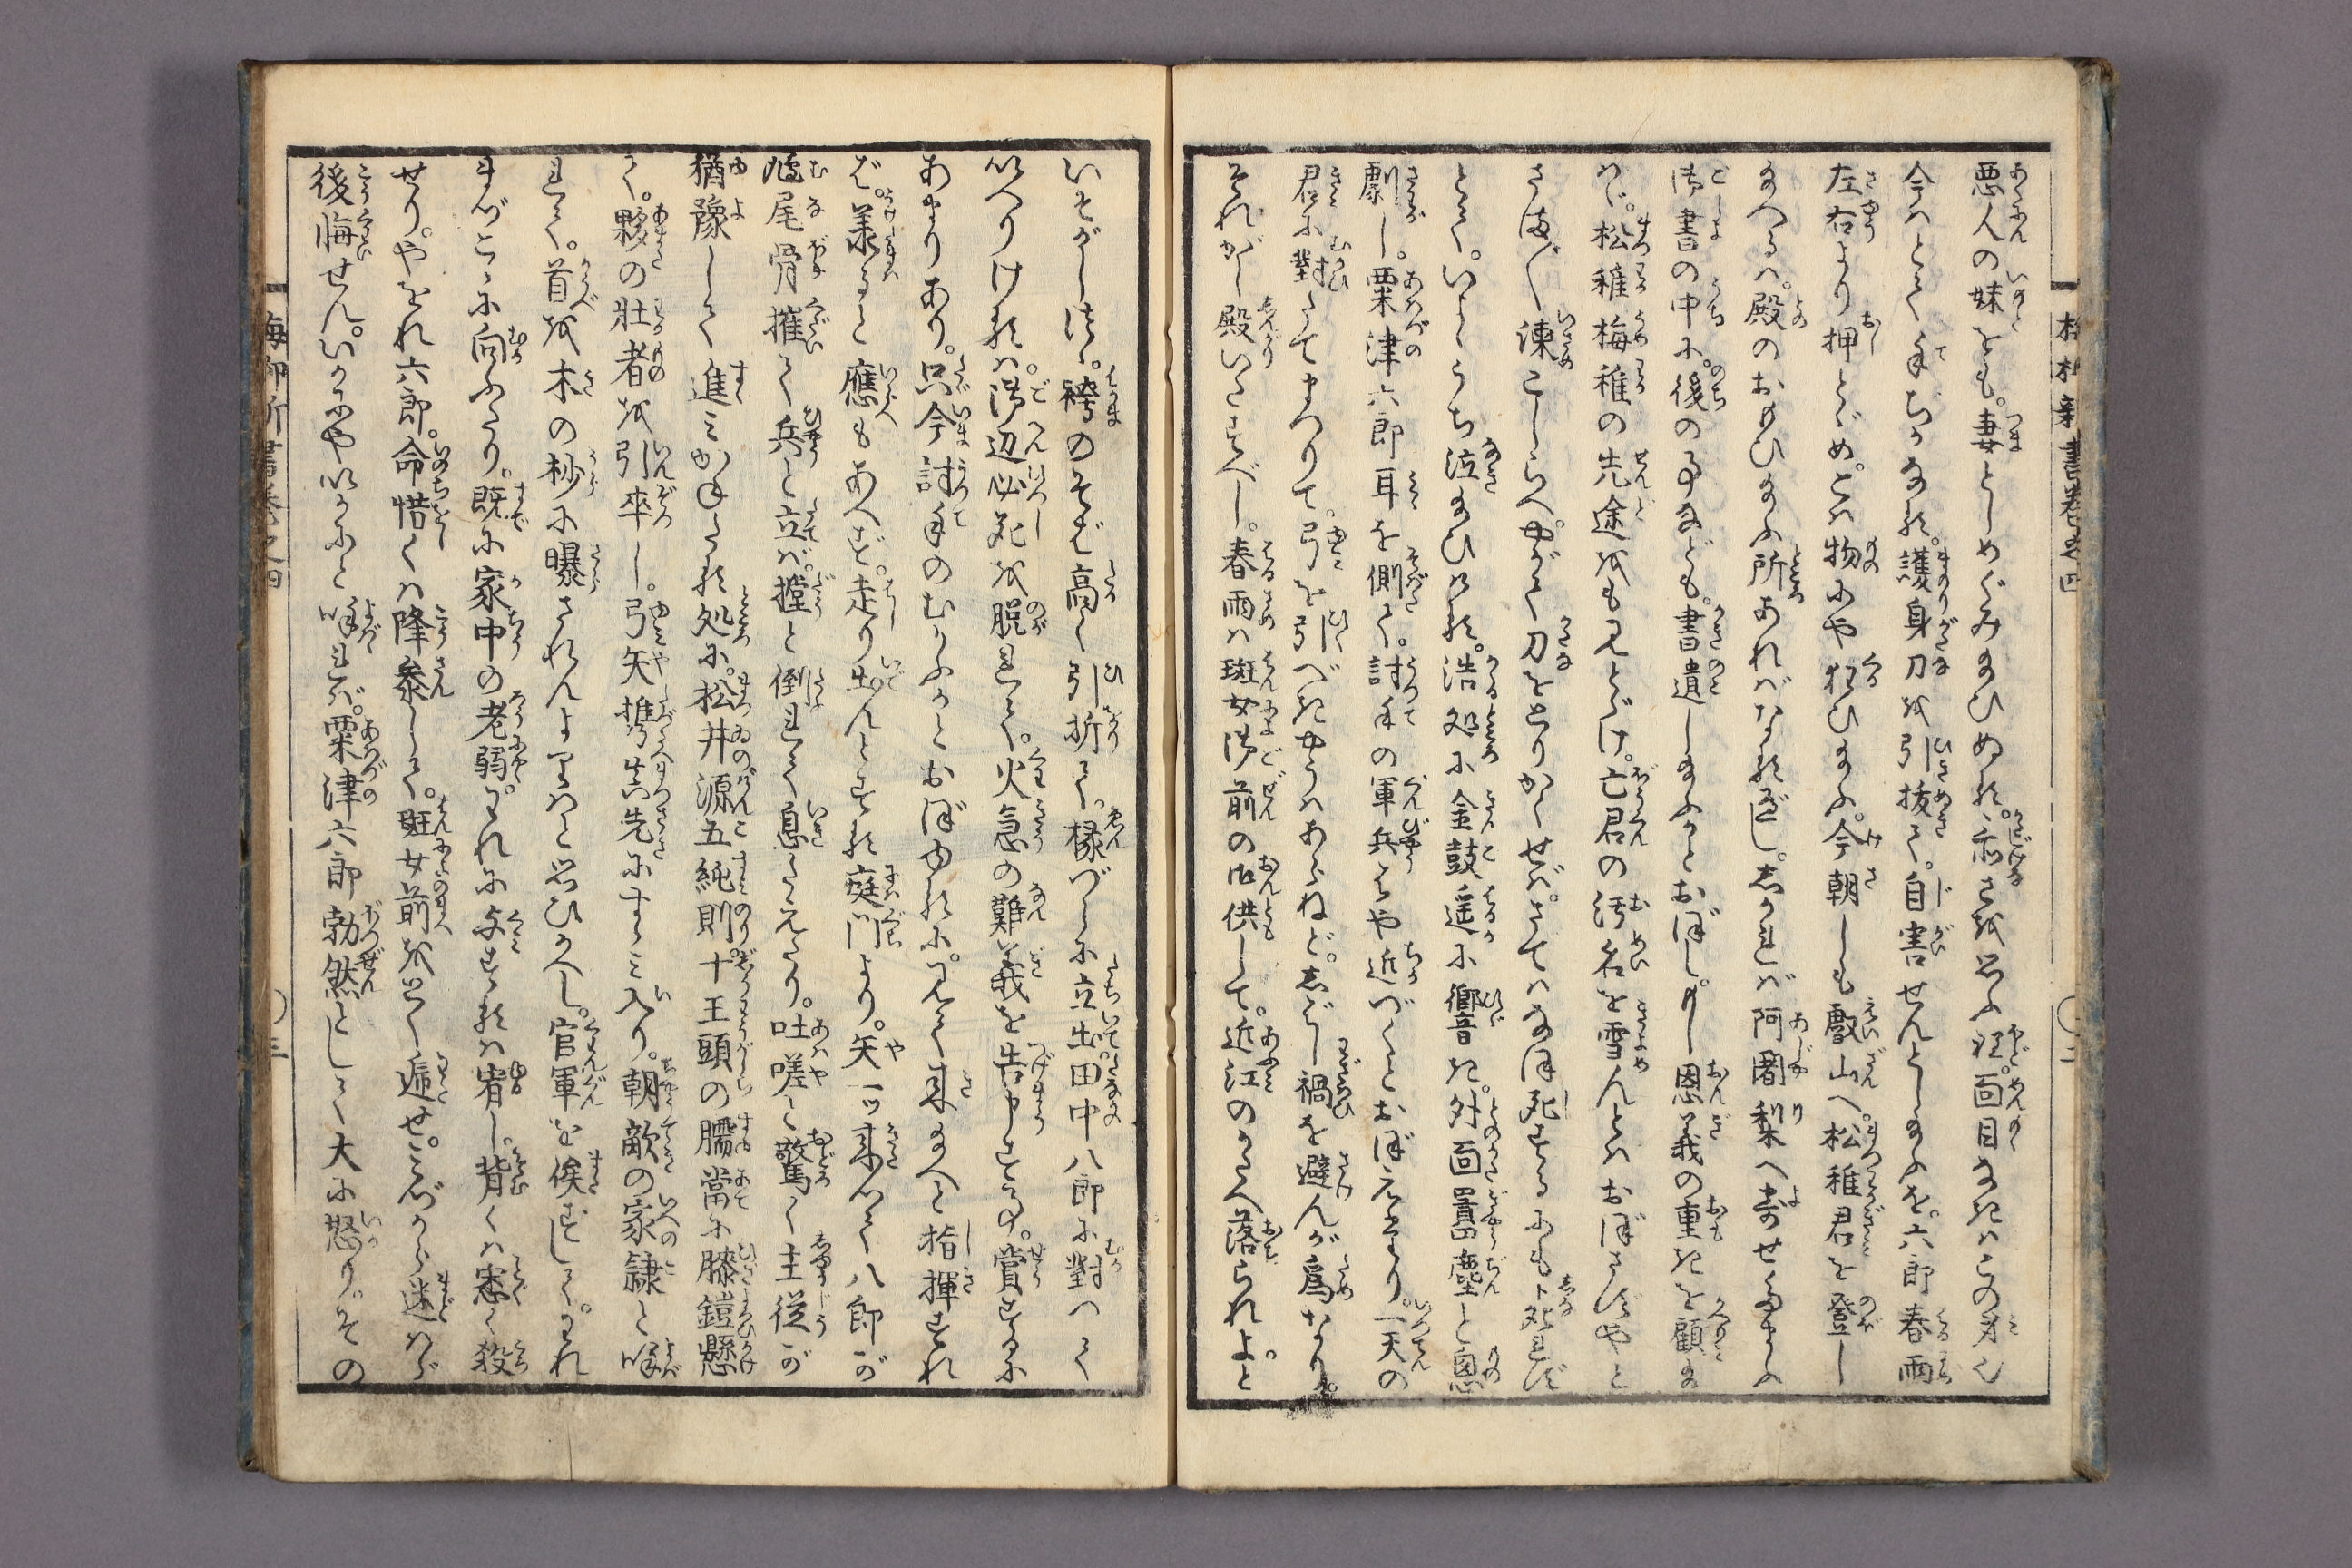 悪人の妹とも。妻としめぐみ給ひぬる。忝さを思ふ程。面目なきはこの身也
今はとて手ぢかなる。護身刀を引抜て。自害せんとし給ふを。六郎春雨
左右より押とゞめ。こは物にや狂ひ給ふ。今朝しも叡山へ。松稚君を登し
給へるは。殿のおもひ給ふ所あればなるべし。しかれば阿闍梨へ寄せ給ふ
御書の中に。後の事なども。書遺し給ふかとおぼし。もし恩義の重きを顧給
はゞ。松稚梅稚の先途をも見とゞけ。亡君の汚名を雪んとはおぼさずやと
さま〲諫こしらへ。やがて刀をとりかくせば。さてはなほ死するにも死れず
とて。いよゝうち泣給ひける。浩処に金鼓遥に響き。外面囂塵と悤
劇し。粟津六郎耳を側て。討手の軍兵はや近づくとおぼえたり。一天の
君に對たてまつりて。弓を引べきやうはあらねど。しばし禍を避んが為なり。
それがし殿いたすべし。春雨は班女御前の御供して。近江のかたへ落られよと
いそがし法。袴のそば高く引折て。椽づらに立出。田中八郎に對つて
いへりけるは。御辺必死を脱れて。火急の難義を告申する。賞するに
あまりあり。只今討手のむかふかとおぼゆるに。見て来給へと指揮すれ
ば。羕ると應もあへず。走り出んとする庭門より。矢一ツ来つて八郎が
鳩尾骨摧て兵と立ば。撞と倒れて息たえたり。吐嗟と驚く主従が
猶豫して進みかねたる処に。松井源五純則。十王頭の臑當に膝鎧懸
て。夥の壮者を引卒し。弓矢携真先にすゝみ入り。朝敵の家隷と呼
れて。首を木の杪に曝されんよりはと思ひかへし。官軍を俟ずして。われ
まづこゝに向ふたり。既に家中の老弱。われに与するは宥し。背くは悉く殺
せり。やをれ六郎。命惜くは降参して。班女前をとく逓せ。みづから迷はゞ
後悔せん。いかにやいかにと呼れば。粟津六郎勃然として大に怒り。その